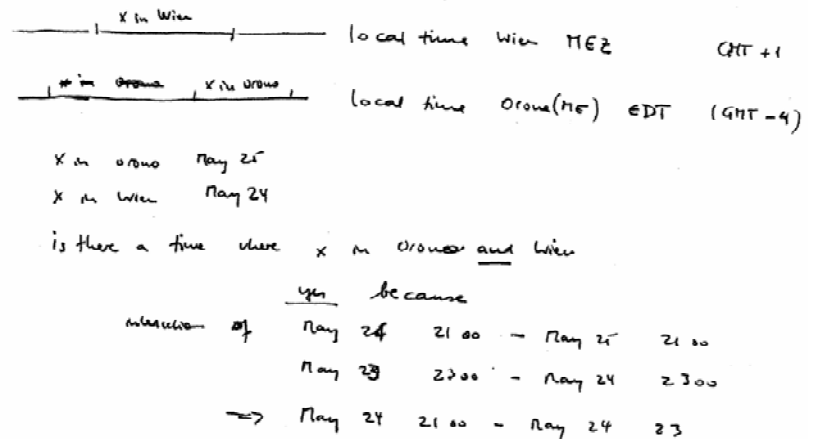 x in Wien
local time Wien MEZ GMT +1
x in Orono
local time Orono (ME) EDT (GMT -4)
x in Orono May 25
x in Wien May 24
is there a time where x in Orono and Wien
yes because
intersection of May 24 21 00 - May 25 21 00
May 23 2300 - May 24 2300
=> May 24 21 00 - May 24 23